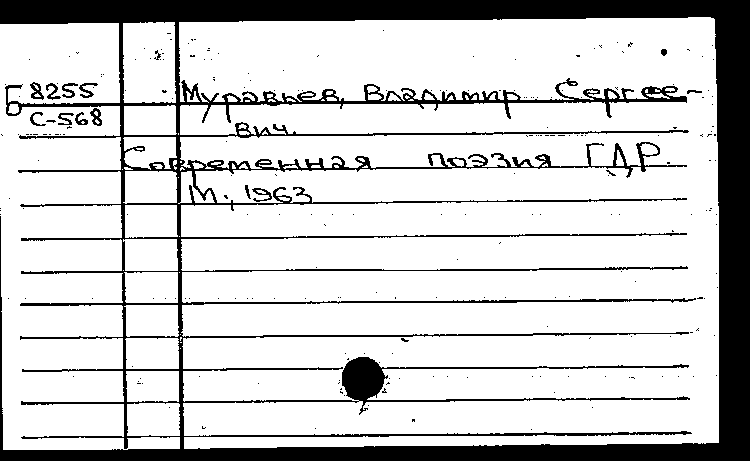 Б 8255
С-568
Муравьев, Владимир Сергее-
вич.
Современная поэзия ГДР.
М., 1963